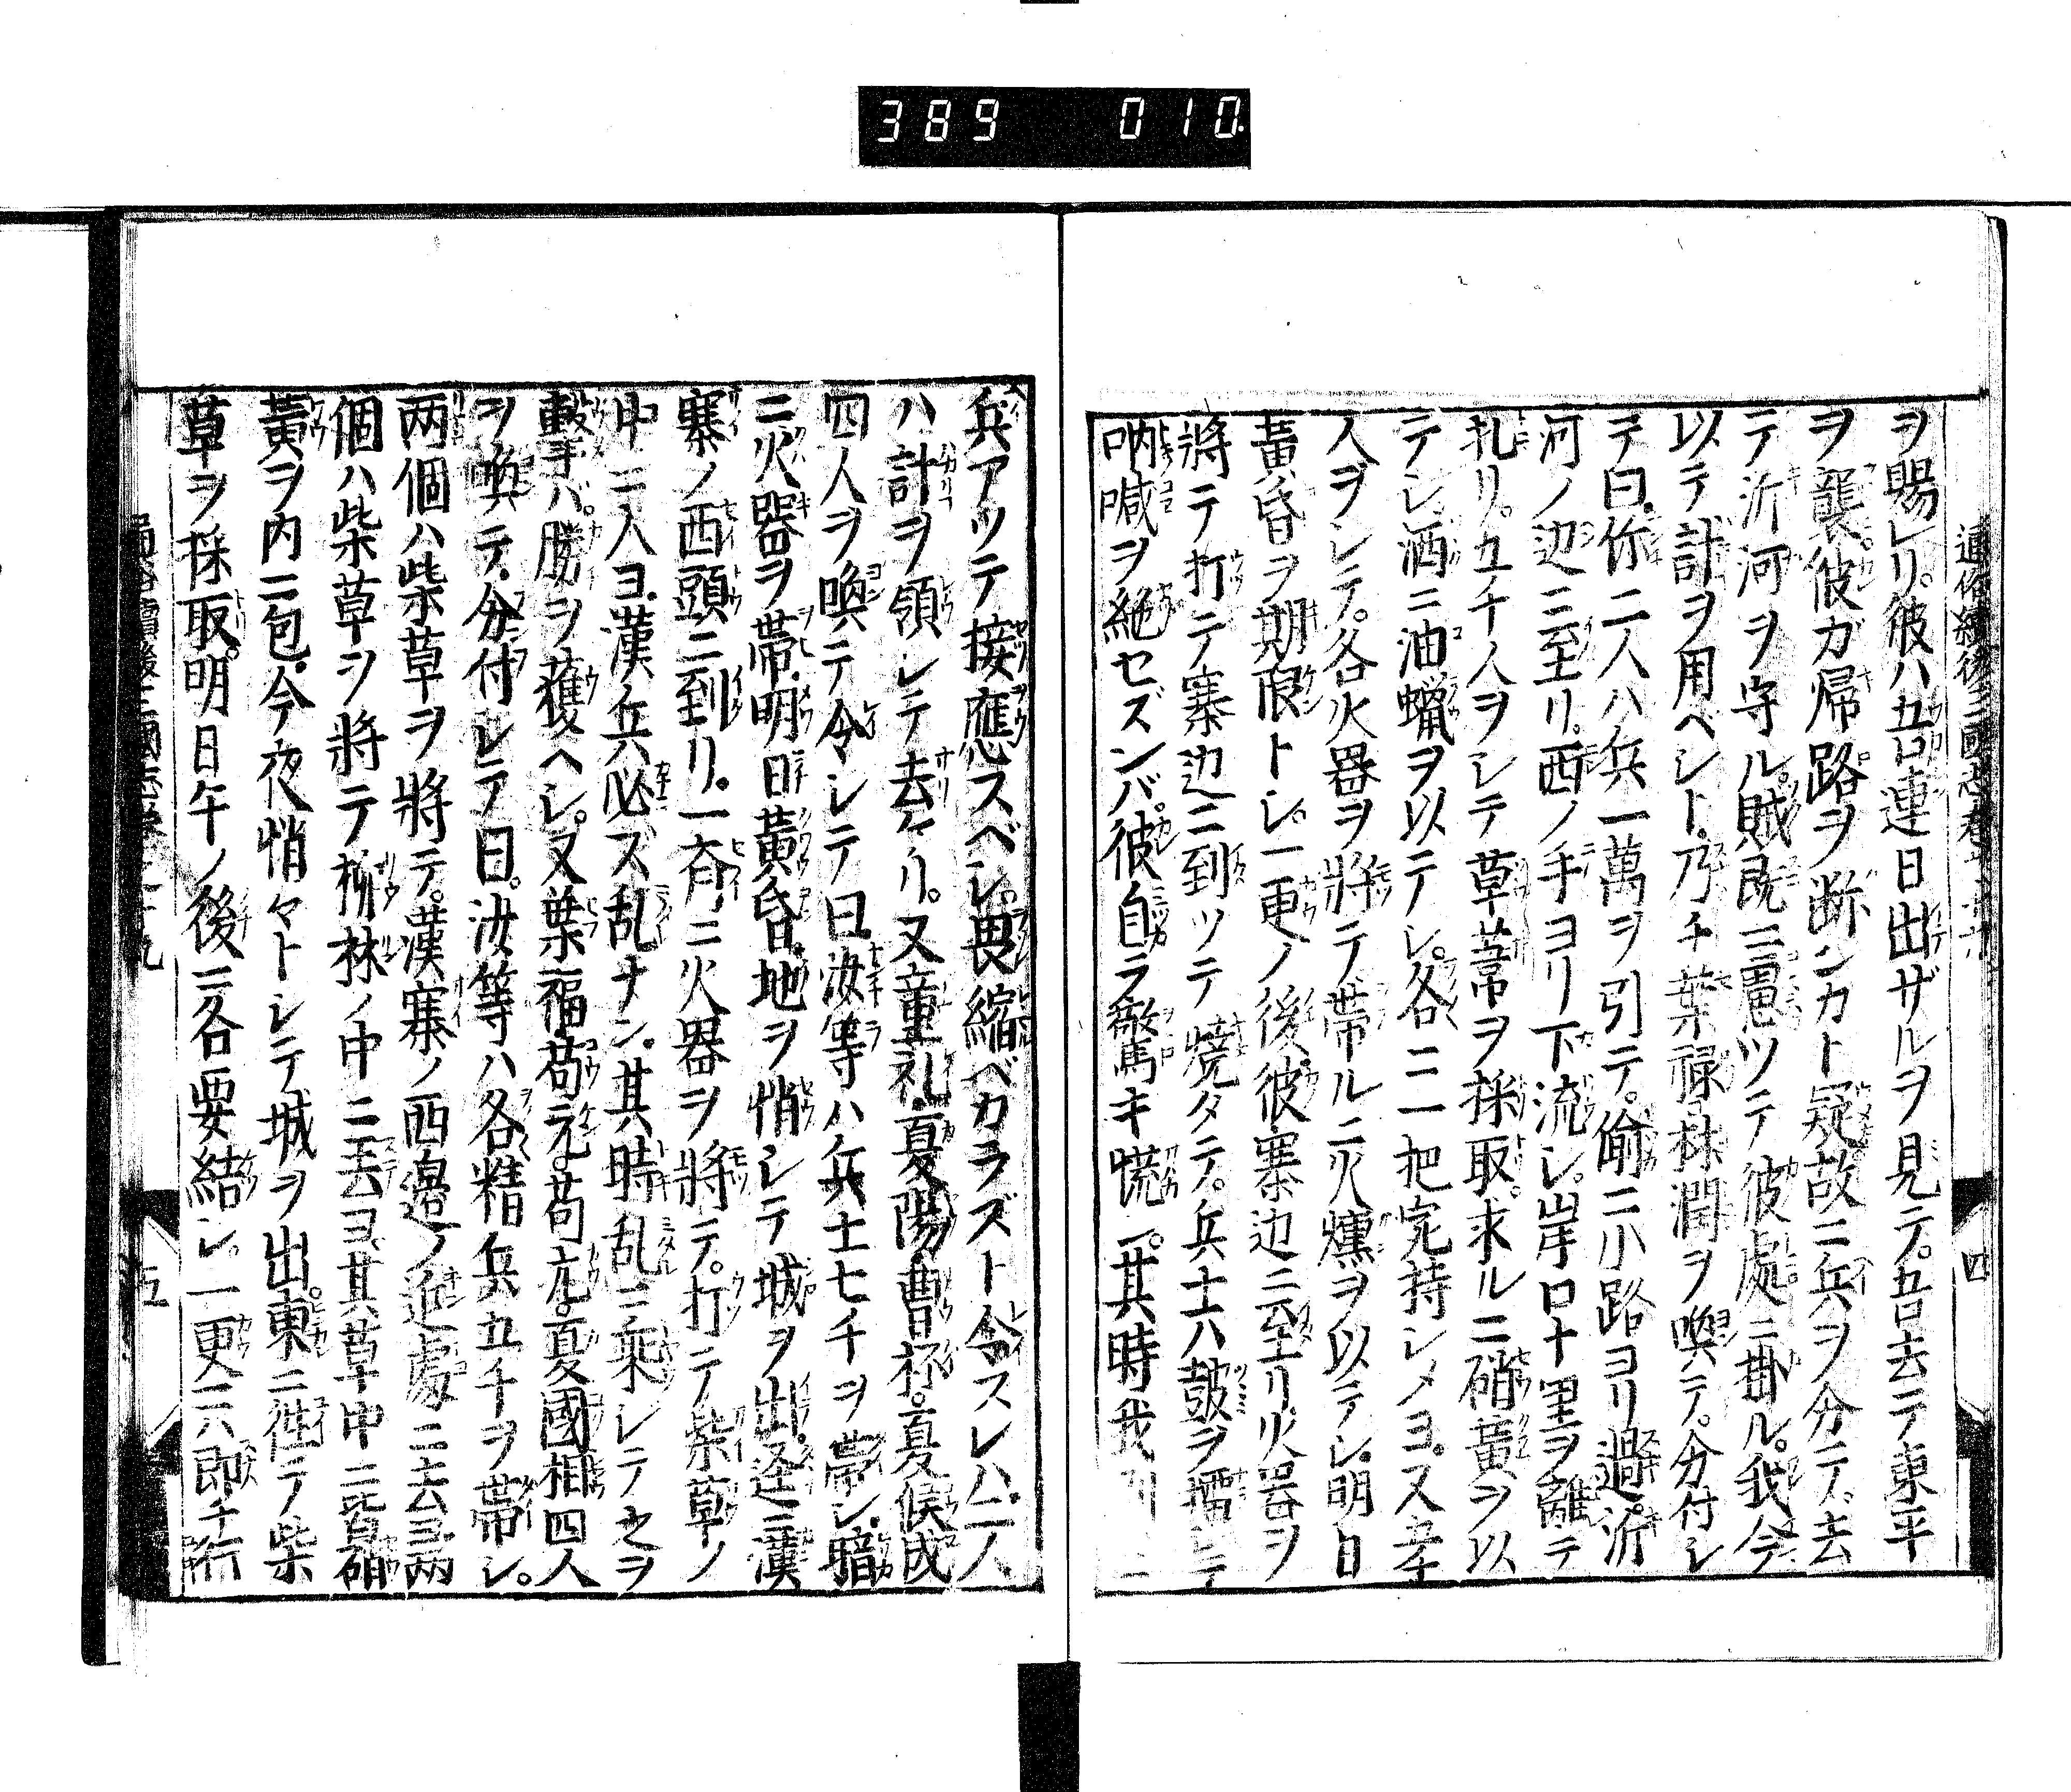 389 010
通俗續後三國志卷
四
ヲ賜レリ。彼ハ吾連日出ザルヲ見テ。吾去テ東平
ヲ襲彼ガ帰路ヲ断ンカト疑故ニ兵ヲ分テ去
テ沂河ヲ守ル。賊既ニ慮ツテ彼處ニ掛ル。我今
以テ計ヲ用ベシト。乃チ葉禄林潤ヲ喚テ。分付シ
テ曰。你二人ハ兵一萬ヲ引テ。偷ニ小路ヨリ過沂
河ノ辺ニ至リ。西ノ手ヨリ下流シ。岸口十里ヲ離テ
札リ。五千人ヲシテ草葦ヲ採取。求ルニ硝黃ヲ以
テシ。酒ニ油蠟ヲ以テシ。各ニ一把完持シメヨ。又五千
人ヲシテ。各火器ヲ將テ帯ルニ火燻ヲ以テシ。明日
黃昏ヲ期限トシ。一更ノ後彼寨辺ニ至リ火器ヲ
將テ打テ寨辺ニ到ツテ焼タテ。兵士ハ皷ヲ擂シテ
吶喊ヲ絶セズンバ。彼自ラ驚キ慌ン。其時我
兵アツテ接應スベシ。畏縮ベカラズト令スレハ。二人
ハ計ヲ領シテ去ケリ。又童礼。夏陽。曹裖。夏侯成
四人ヲ喚テ令シテ曰汝等ハ兵士七千ヲ帶シ。暗
ニ火器ヲ帯。明日黃昏。地ヲ悄シテ城ヲ出。逕ニ漢
寨ノ西頭ニ到リ。一斉ニ火器ヲ將テ。打テ柴草ノ
中ニ入ヨ。漢兵必ズ乱ナン。其時乱ニ乗シテ之ヲ
轂手バ。勝ヲ獲ヘシ。又葉福。苟元。苟亢。夏國相四人
ヲ喚テ。分付シテ曰。汝等ハ各精兵五千ヲ帶シ。
两個ハ柴草ヲ將テ。漢寨ノ西邉ノ近處ニ去ヨ。两
個ハ柴草ヲ將テ栁林ノ中ニ去ヨ。其草中ニ皆硝
黃ヲ内ニ包。今夜悄々トシテ城ヲ出。東ニ徃テ柴
草ヲ採取。明日午ノ後ニ各要結シ。一更ニハ即チ行
五